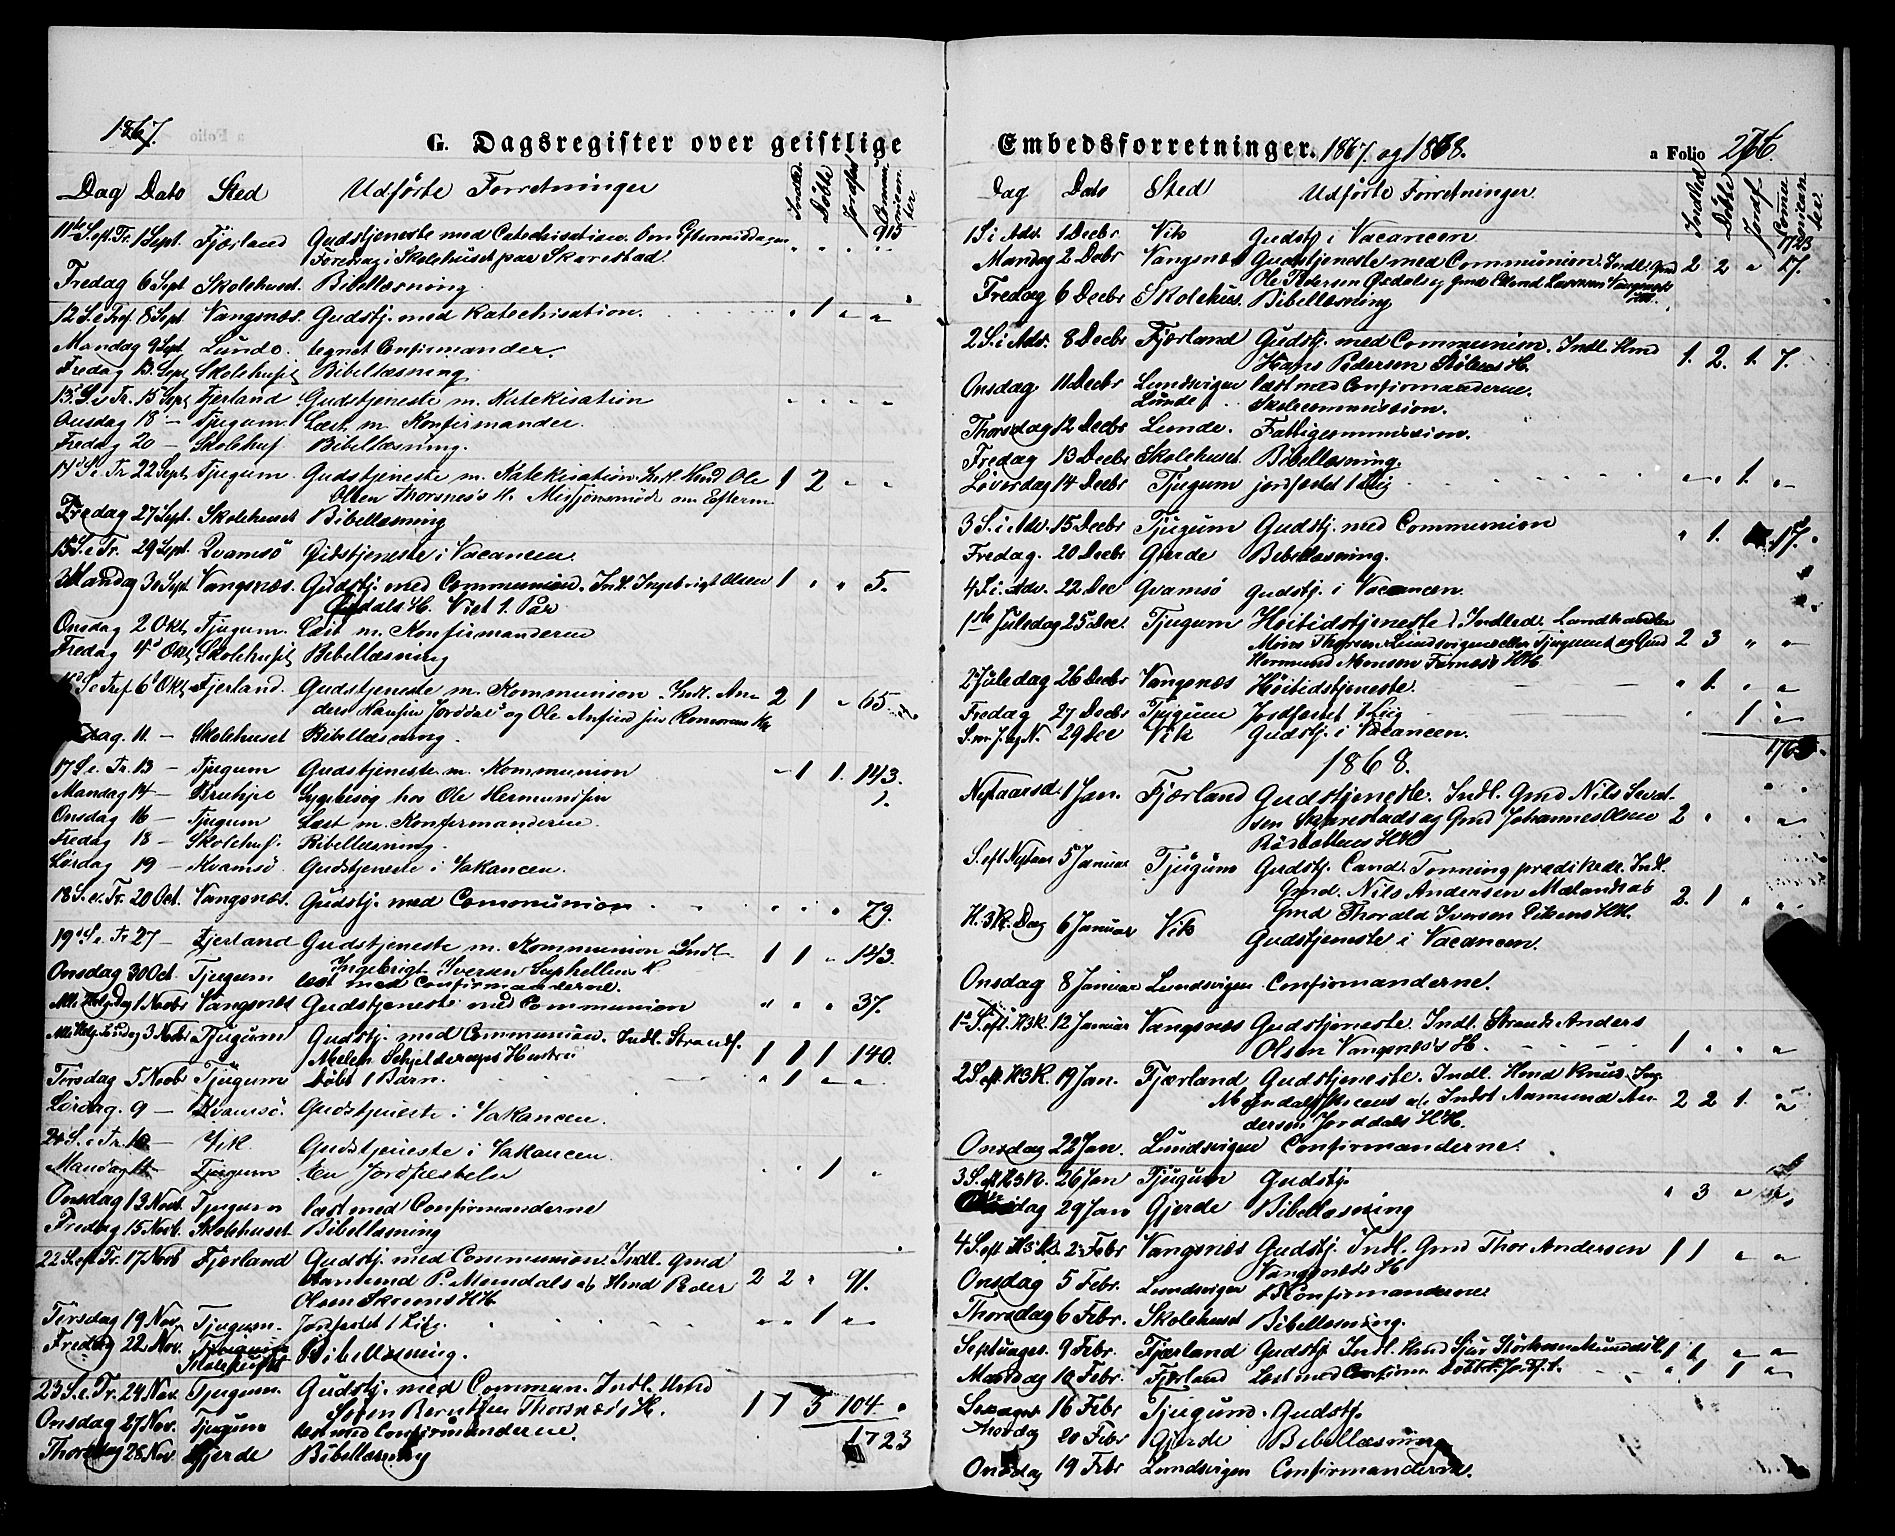 1867.
G. Dagsregister over geistlige
Dag Dato Sted Udførte Forretninger Indled. Döbte Jordf. Commu-nican-ter
11te S. ef. Tr. 1 Sept. Fjærland Gudstjeneste med Catechisation. Om Eftermiddagen " " " 915
Foredrag i Skolehuset paa Skarestad.
Fredag 6 Sept Skolehuset Bibellæsning.
12 S. e Tref. 8 Sept. Vangsnæs. Gudstj. med Katechisation. " 1 " "
Mandag 9 Sept. Lunde. tegnet Confirmander.
Fredag 13. Sept Skolehuset Bibellæsning.
13de S. e Tr. 15 Sept. Fjerland. Gudstjeneste m. Katekisation " " " "
Onsdag 18 — Tjugum. Læst m. Konfirmander.
Fredag 20 — Skolehus Bibellæsning.
14d S. e. Tr. 22 Sept. Tjugum. Gudstjeneste m. Katekisation. Indl. Hmd Ole 1 2 " "
Olsen Thorsnes's H. Missjonsmøde om Efterm
Fredag 27 Sept. Skolehuset Bibellæsning
15 S. e Tr. 29 Sept. Qvamsö Gudstjeneste i Vacancen.
Mandag 30 Sept. Vangsnæs. Gudstj. med Communion. Indl. Ingebrigt Olsen 1 " " 5.
H. Viet 1. Par
Onsdag 2 Okt. Tjugum. Læst m. Konfirmanderne
Fredag 4d Okt. Skolehuset Bibellæsning
S. e Tref 6d Okt. Fjerland. Gudstjeneste m. Kommunion. Indl. An- 2 1 " 65
ders Hansen Jorddals og Ole
dag. 11. — Skolehuset Bibellæsning.
17 S. e. Tr. 13 — Tjugum Gudstjeneste m. Kommunion " 1 1. 143.
Mandag 14 — Sygebesøg hos Ole Hermundsen 1.
Onsdag 16 — Tjugum Læst m. Konfirmanderne.
Fredag 18 — Skolehus. Bibellæsning.
Lørdag 19 — Kvamsö. Gudstjeneste i Vakancen.
18 S. e. Tr. 20 Oct. Vangsnæs. Gudstj. med Communion " " " 79.
19d S. e. Tr 27 — Fjerland Gudstjeneste m. Kommunion Indl. 1 1 " 143.
Ingebrigt Iversen Suphellens H.
Onsdag 30 Oct. Tjugum læst med Confirmanderne.
Alle Helg. Dag 1 Novbr Vangsnæs Gudstjeneste med Communion " " " 37.
Alle Helg. Söndag 3 Novbr Tjugum Gudstj. med Communion. Indl. Strands. 1 1 1 140.
Hustru
Torsdag 5 Novb Tjugum Döbt 1 Barn. " 1 " "
Lördag. 9 — Kvamsö. Gudstjeneste i Vakancen.
S. e Tr. 10 — Vik. Gudstjeneste i Vakancen.
Mandag — Tjugum En Jordfæstelse " " 1 "
Onsdag 13 Novb. Tjugum læst med Confirmanderne
Fredag 15 Novb. Skolehuset Bibellæsning
22 S. eft Tr. 17 Novb Fjærland Gudstj. med Communion. Indl. Gmd 2 2 " 91.
P. Mundals og Hmd Peder
Olsen Skreens HH
Torsdag 19 Nov. Tjugum. Jordfæstet 1 Lig. " " 1 "
Fredag 22 Nov. Skolehuset Bibellæsning.
23 S. e. Tr. 24 Nov. Tjugum. Gudstj. med Commun. Indl. Hmd 1 1 5 104
Thorsnæs's H.
Onsdag 27 Nov. Tjugum læst med Confirmanderne.
Thorsdag 28 Nov. Gjerde Bibellæsning 1723
Embedsforretninger. 1867. og 1868.
a Folio 266.
Dag Dato Sted Udförte Forretninger. Indled Döbte Jordf. Communicanter.
1 S. i Adv. 1 Decbr Vik Gudstj i Vacancen 1723
Mandag 2 Decbr Vangsnæs Gudstjeneste med Communion. Indl. Gmd 2 2 " 17.
Ole Pedersen
Fredag 6 Decbr Skolehus. Bibellæsning
2 S. i Adv. 8 Decbr Fjærland Gudstj. med Communion. Indl. Hmd 1. 2. 1. 7.
Hans Pedersen Stölens H.
Onsdag 11 Decbr Lundsvigen læst med Confirmanderne.
Lunde Skolecommission.
Thorsdag 12 Decbr Lunde. Fattigcommission.
Fredag 13 Decbr Skolehuset Bibellæsning.
Löverdag 14 Decbr Tjugum jordfæstet 1 Lig " " 1. "
3 S. i Adv. 15 Decbr Tjugum Gudstj. med Communion " 1. 17.
Fredag. 20 Decbr Gjerde Bibellæsning.
4 S. i. Adv. 22 Dec Qvamsö Gudstj. i Vacancen.
1ste Juledag 25 Dec. Tjugum Höitidstjeneste. Indled. Landhandler 2 3 " "
Möns Thorsen Lundsvigens eller Tjugums og Gmd
Hermund Monsen Farnes's HH.
2 Juledag 26 Decbr Vangsnæs Höitidstjeneste. " 1. " "
Fredag 27 Decbr Tjugum Jordfæstet 1 Lig " 1 "
S. m. J. og N. 29 Dec Vik Gudstj. i Vacancen.
1868.
Nytaarsd. 1 Jan. Fjærland Gudstjeneste. Indl. Gmd Nils Sevat- 2 " " "
sen Skarestads og Gmd Johannes Olsen
HH
S. eft Nytaar 5 Januar Tjugum Gudstj. Cand. Tonning prædikede. Indl. 2. 1 " "
Gmd. Nils Andersen Mælands og
Gmd Thorald Iversen HH.
H. 3 K. Dag 6 Januar Vik Gudstjeneste i Vacancen.
Onsdag 8 Januar Lundsvigen Confirmanderne.
1ste S. eft. H3K. 12 Januar Vangsnæs Gudstjeneste. Indl. Strands. Anders 1 " " "
Olsen Vangsnæs's H.
2 S. eft. H3K. 19 Jan. Fjærland Gudstjeneste. Indl. Hmd Knud 2 2 1. "
Mundals og Indst Aamund An-
dersen Jorddals HH.
Onsdag 22 Jan. Lundsvigen Confirmanderne.
3 S. eft H3K. 26 Jan Tjugum Gudstj. " 3 "
dag 29 Jan Gjerde Bibellæsning
4 S. eft H3K. 2 Febr Vangsnæs Gudstj. Indl. Gmd Thor Andersen 1 1 " "
Vangsnæs's H.
Onsdag 5 Febr. Lundsvigen Confirmanderne
Thorsdag 6 Febr. Skolehuset Bibellæsning.
Septuages. 9 Febr. Fjærland Gudstj. Indl. Hmd Sjur 1 1 " "
Mandag 10 Febr. Fjærland Læst med Confirm. " 1 1 "
Sexages. 16 Febr Tjugum. Gudstj.
Thorsdag 20 Febr Gjerde Bibellæsning
Onsdag 19 Febr Lundsvigen Confirmanderne.